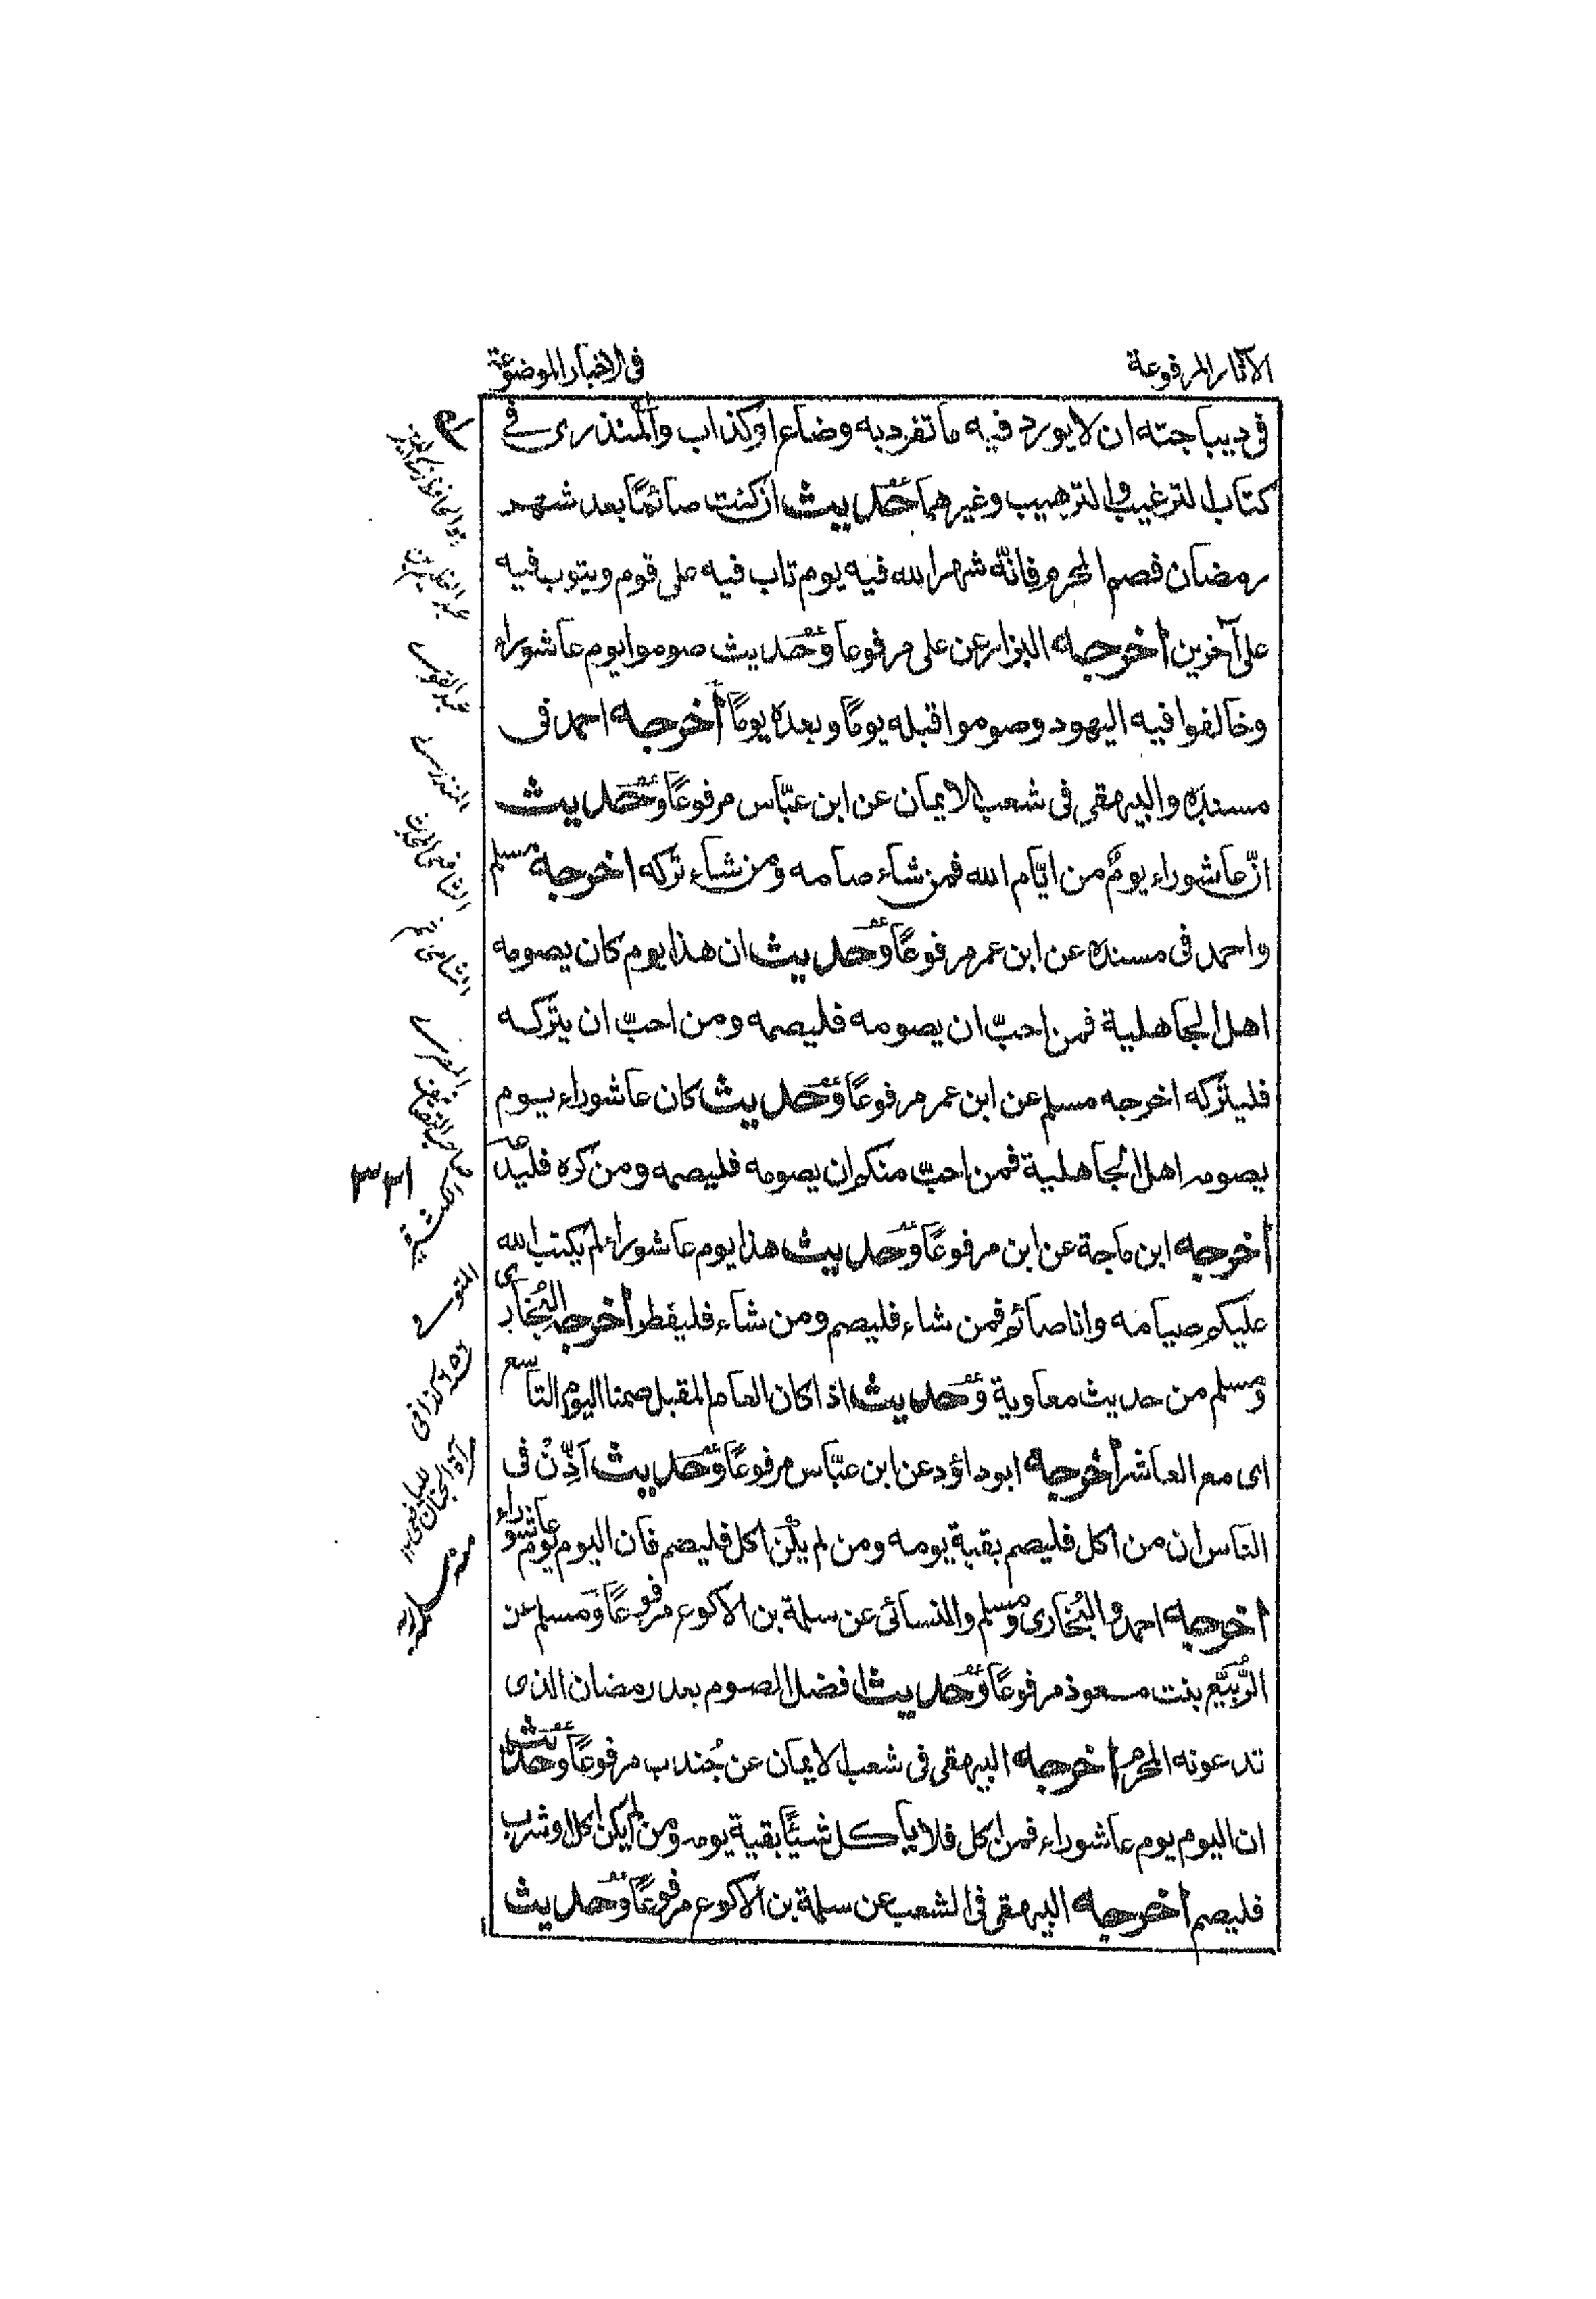 الآثار المرفوعة
فى الاخبار الموضوعة
فى ديباجته ان لا يورد فيه ما تفرد به وضاع او كذاب والمنذرى فى
كتاب الترغيب والترهيب وغيرهما حديث ان كنت صائمًا بعد شهر
رمضان فصم المحرم فانّه شهر الله فيه يوم تاب فيه على قوم ويتوب فيه
على آخرين أخرجه البزار عن على مرفوعا وحديث صوموا يوم عاشوراء
وخالفوا فيه اليهود وصوموا قبله يومًا وبعده يومًا أخرجه احمد فى
مسنده والبيهقى فى شعب الايمان عن ابن عبّاس مرفوعًا وحديث
انّ عاشوراء يومٌ من ايّام الله فمن شاء صامه ومن شاء تركه اخرجه مسلم
واحمد فى مسنده عن ابن عمر مرفوعًا وحديث ان هذا يوم كان يصومه
اهل الجاهلية فمن احبّ ان يصومه فليصمه ومن احبّ ان يتركه
فليتركه اخرجه مسلم عن ابن عمر مرفوعًا وحديث كان عاشوراء يوم
يصومه اهل الجاهلية فمن احبّ منكم ان يصومه فليصمه ومن كره فليدعه
أخرجه ابن ماجة عن ابن مرفوعًا وحديث هذا يوم عاشوراء لم يكتب الله
عليكم صيامه وانا صائم فمن شاء فليصم ومن شاء فليفطر أخرجه البُخارى
ومسلم من حديث معاوية وحديث اذا كان العام المقبل صمنا اليوم التاسع
اى مع العاشر أخرجه ابو داؤد عن ابن عبّاس مرفوعًا وحديث اَذِّنْ فى
الناس ان من اكل فليصم بقية يومه ومن لم يكن اكل فليصم فان اليوم يوم عاشوراء
أخرجه احمد والبُخارى ومسلم والنسائى عن سلمة بن الاكوع مرفوعًا ومسلم عن
الرُّبَيِّع بنت مسعوذ مرفوعًا وحديث افضل الصوم بعد رمضان الذى
تدعونه المحرم أخرجه البيهقى فى شعب الايمان عن جُندب مرفوعًا وحديث
ان اليوم يوم عاشوراء فمن اكل فلا ياكل شيئًا بقية يومه ومن لم يكن اكل او شرب
فليصم أخرجه البيهقى فى الشعب عن سلمة بن الاكوع مرفوعًا وحديث
هو الحافظ زكى الدين
عبد العظيم بن
عبد القوى
المنذرى
الشافعى
الشامى ثم
المصرى
المتوفى
٦٥٦ كذا فى
مرآة الجنان لليافعى ١٢
منه
٣٣١